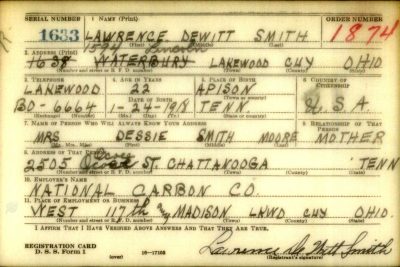 SERIAL NUMBER 1. NAME (Print) ORDER NUMBER
1633 LAWRENCE DEWITT SMITH 1874
1524 Lincoln
2. ADDRESS (Print)
1638 WATERBURY LAKEWOOD CUY OHIO
(Number and street or R. F. D. number) (Town) (County) (State)
3. TELEPHONE 4. AGE IN YEARS 5. PLACE OF BIRTH 6. COUNTRY OF CITIZENSHIP
LAKEWOOD 22 APISON
DATE OF BIRTH (Town or county)
BO-6664 1-24-1918 TENN. U.S.A.
(Exchange) (Number) (Mo.) (Day) (Yr.) (State or country)
7. NAME OF PERSON WHO WILL ALWAYS KNOW YOUR ADDRESS 8. RELATIONSHIP OF THAT PERSON
MRS DESSIE SMITH MOORE MOTHER
(Mr., Mrs., Miss) (First) (Middle) (Last)
9. ADDRESS OF THAT PERSON
2505 ST. CHATTANOOGA TENN
(Number and street or R. F. D. number) (Town) (County) (State)
10. EMPLOYER'S NAME
NATIONAL CARBON CO.
11. PLACE OF EMPLOYMENT OR BUSINESS
WEST 117th MADISON LKWD CUY OHIO.
(Number and street or R. F. D. number) (Town) (County) (State)
I AFFIRM THAT I HAVE VERIFIED ABOVE ANSWERS AND THAT THEY ARE TRUE.
REGISTRATION CARD
D. S. S. Form 1 (over) 16-17105 Lawrence DeWitt Smith
(Registrant's signature)